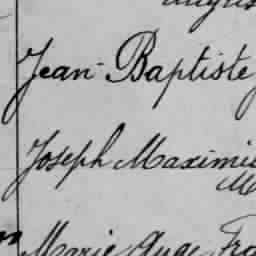 Jean-Baptiste
Joseph Maximi
Marie Ange Fra